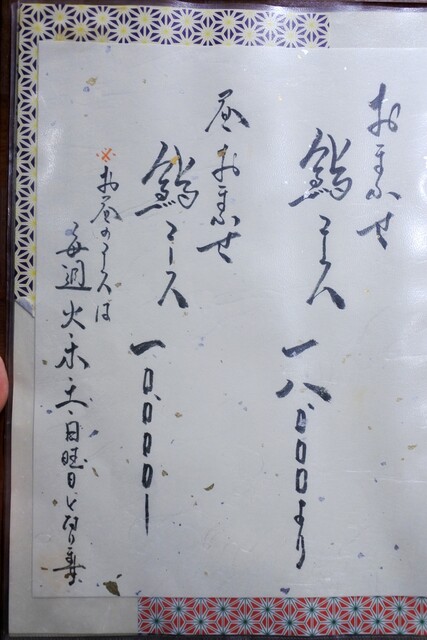 おまかせ
鮨コース 一八、〇〇〇より
昼おまかせ
鮨コース 一〇、〇〇〇ー
※お昼のコースは
毎週火・木・土・日曜日となります